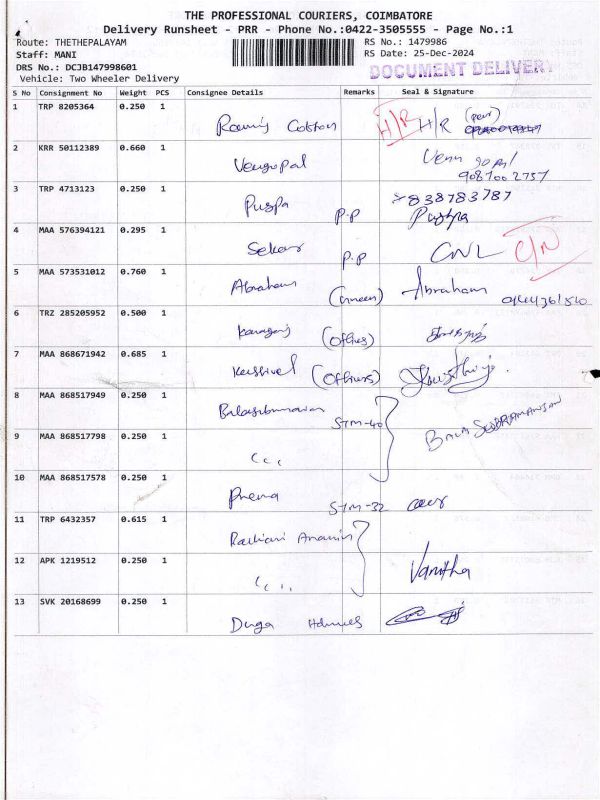 THE PROFESSIONAL COURIERS, COIMBATORE
Delivery Runsheet - PRR - Phone No.:0422-3505555 - Page No.:1
Route: THETHEPALAYAM RS No.: 1479986
Staff: MANI RS Date: 25-Dec-2024
DRS No.: DCJB147998601 DOCUMENT DELIVERY
Vehicle: Two Wheeler Delivery
S No Consignment No Weight PCS Consignee Details Remarks Seal & Signature
1 TRP 8205364 0.250 1
H/R H/R
2 KRR 50112389 0.660 1
Venugopal 9087002757
3 TRP 4713123 0.250 1
Puspa P.P 838783787
Pushpa
4 MAA 576394121 0.295 1
Sekar P.P CNL C/N
5 MAA 573531012 0.760 1
Abraham Abraham
6 TRZ 285205952 0.500 1
(Others)
7 MAA 868671942 0.685 1
(Others)
8 MAA 868517949 0.250 1
Balasubramaniam STM-40 BALA SUBRAMANIAN
9 MAA 868517798 0.250 1
10 MAA 868517578 0.250 1
Prema STM-32
11 TRP 6432357 0.615 1
12 APK 1219512 0.250 1
Vanitha
13 SVK 20168699 0.250 1
Durga